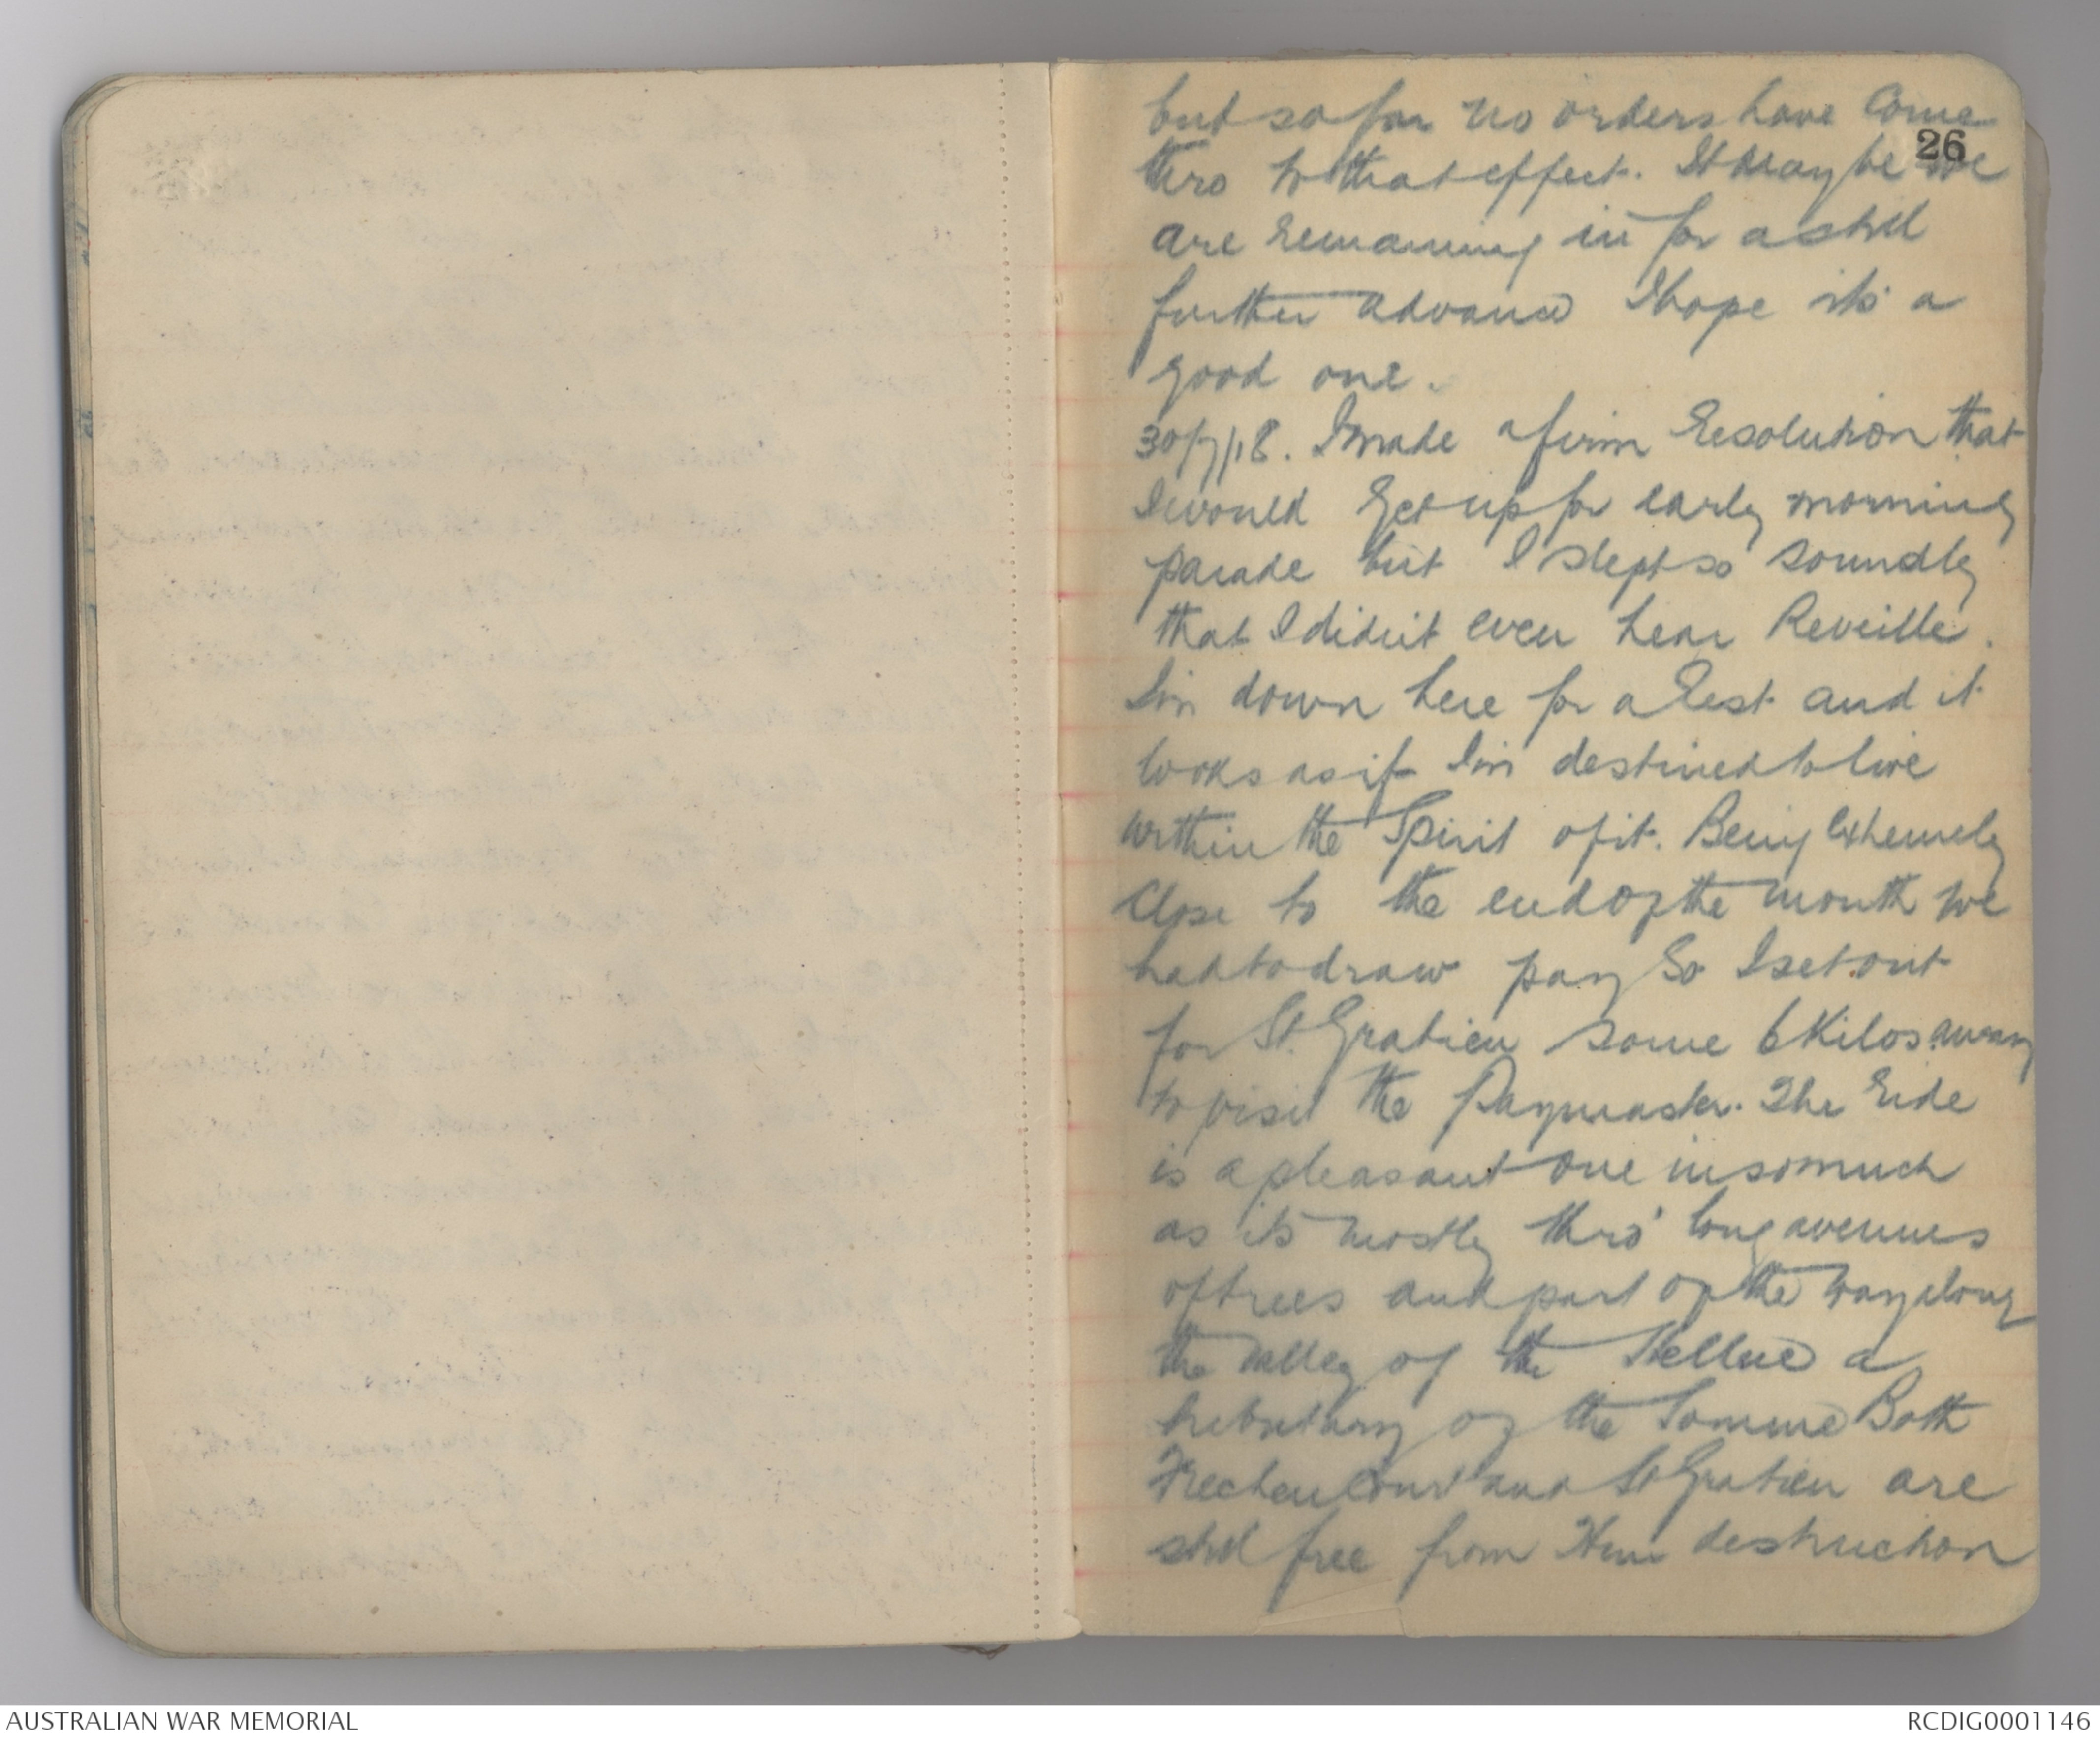 but so far no orders have come
26
thro to that effect. It may be we
are remaining in for a still
further advance I hope its a
good one.
30/7/18. I made a firm resolution that
I would get up for early morning
parade but I slept so soundly
that I didn't even hear Reveille.
I'm down here for a rest and it
looks as if I'm destined to live
within the spirit of it. Being extremely
close to the end of the month we
had to draw pay so I set out
for St. Gratien some 6 Kilos away
to visit the Paymaster. The ride
is a pleasant one insomuch
as its mostly thro' long avenues
of trees and part of the way along
the valley of the Hellue a
tributary of the Somme Both
Frechencourt and St Gratien are
still free from Hun destruction
AUSTRALIAN WAR MEMORIAL
RCDIG0001146